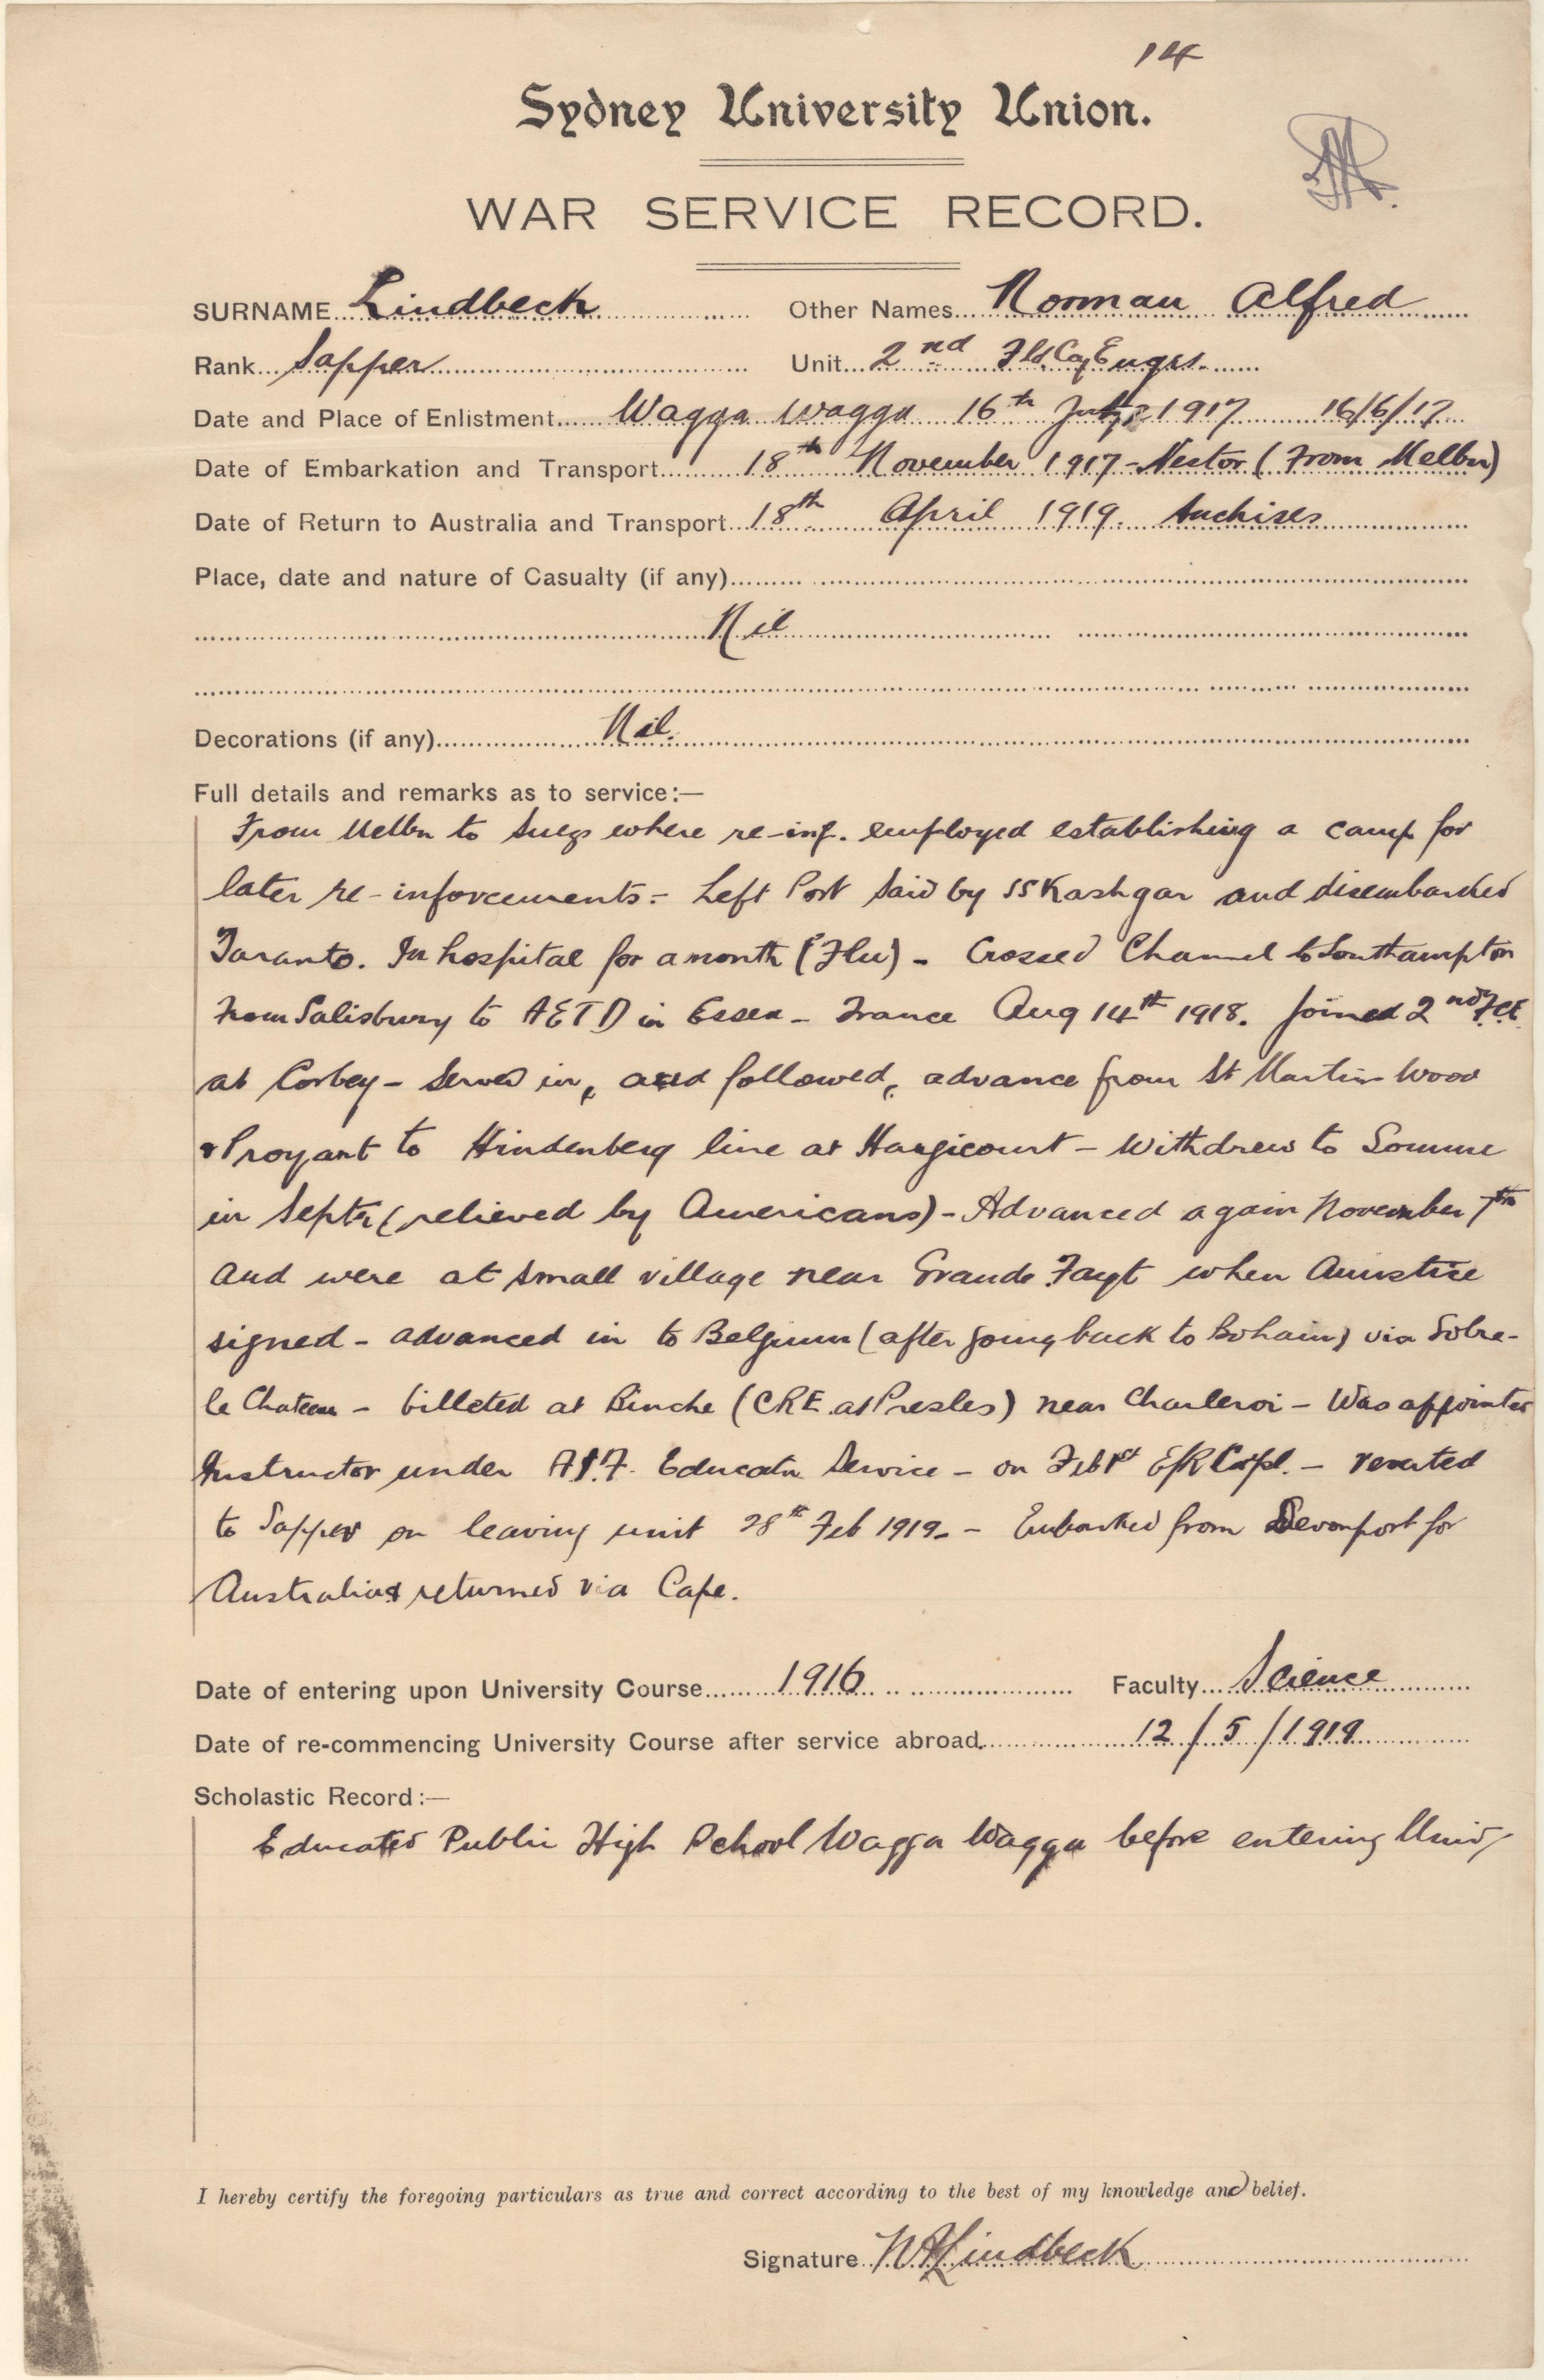 14
Sydney University Union.
WAR SERVICE RECORD.
SURNAME Lindbeck Other Names Norman Alfred
Rank Sapper Unit 2nd Fld. Coy Engrs.
Date and Place of Enlistment Wagga Wagga 16th 1917 16/6/17
Date of Embarkation and Transport 18th November 1917 - Nestor (From Melbn)
Date of Return to Australia and Transport 18th April 1919. Anchises
Place, date and nature of Casualty (if any)
Nil
Decorations (if any) Nil.
Full details and remarks as to service:—
From Melbn to Suez where re-inf. employed establishing a camp for
later re-inforcements - Left Port Said by SS Kashgar and disembarked
Taranto. In hospital for a month (Flu) - Crossed Channel to Southampton
From Salisbury to AETD in Essex - France Aug 14th 1918. Joined 2nd F.C.E
at Corbey - Served in, and followed, advance from St Martin Wood
& Proyart to Hindenberg line at Hargicourt - Withdrew to Somme
in Septr (relieved by Americans) - Advanced again November 7th
and were at small village near Grande Fayt when Armistice
signed - advanced in to Belgium (after going back to Bohain) via Solre-
le Chateau - billeted at Binche (CRE at Presles) near Charleroi - Was appointed
Instructor under A.I.F. Educatn Service - on Feb 1st E/R Corpl. - reverted
to Sapper on leaving unit 28th Feb 1919. - Embarked from Devonport for
Australia & returned via Cape.
Date of entering upon University Course 1916 Faculty Science
Date of re-commencing University Course after service abroad 12/5/1919
Scholastic Record:—
Educated Public High School Wagga Wagga before entering Univ
I hereby certify the foregoing particulars as true and correct according to the best of my knowledge and belief.
Signature NALindbeck